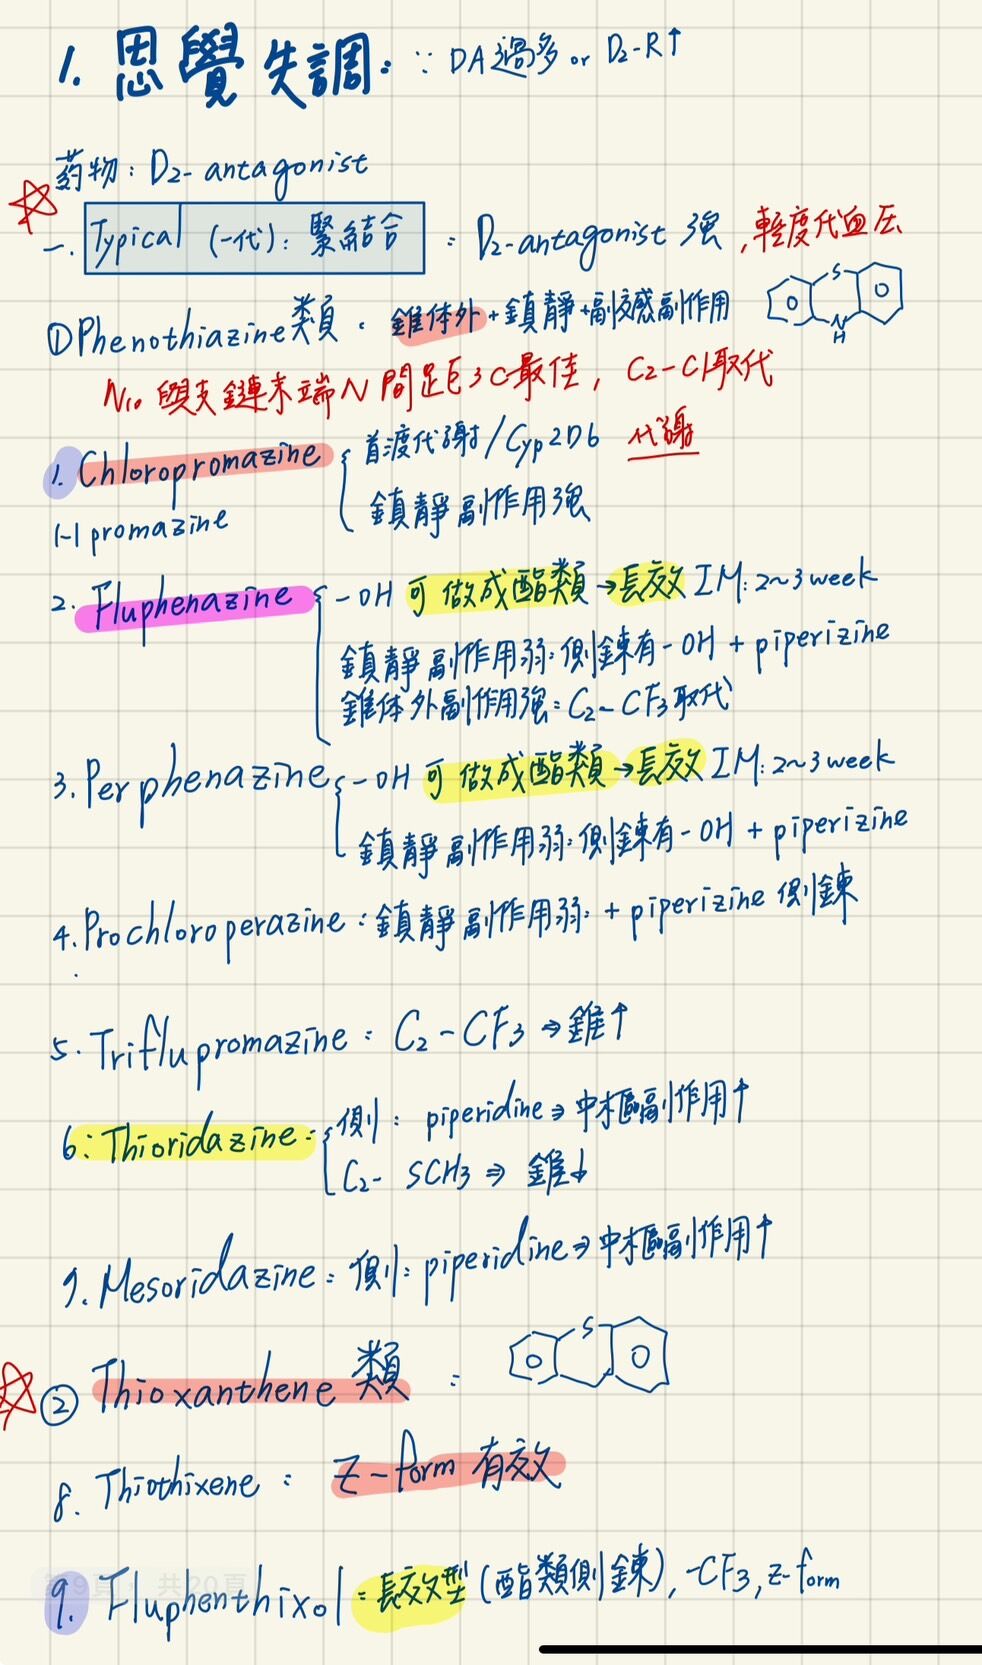 1. 思覺失調：∵ DA過多 or D2-R↑
药物：D2- antagonist
一. Typical (一代)：緊結合：D2-antagonist 強，輕度代血压
①Phenothiazine類：錐体外+鎮靜+副交感副作用
S
N
H
N10 與支鏈末端N間足巨3C最佳，C2-Cl取代
1. Chloropromazine { 首渡代謝/Cyp2D6 代謝
鎮靜副作用強
1-1 promazine
2. Fluphenazine { -OH 可做成酯類→長效 IM：2~3week
鎮靜副作用弱：側鍊有-OH + piperizine
錐体外副作用強：C2-CF3取代
3. Perphenazine { -OH 可做成酯類→長效 IM：2~3week
鎮靜副作用弱：側鍊有-OH + piperizine
4. Prochloroperazine：鎮靜副作用弱：+ piperizine 側鍊
5. Triflupromazine：C2-CF3 ⇒錐↑
6：Thioridazine：{ 側：piperidine⇒中樞副作用↑
C2- SCH3 ⇒ 錐↓
7. Mesoridazine：側：piperidine⇒中樞副作用↑
② Thioxanthene 類：
S
8. Thiothixene：Z-form 有效
9. Fluphenthixol：長效型 (酯類側鍊)，-CF3, z-form
第9頁，共20頁